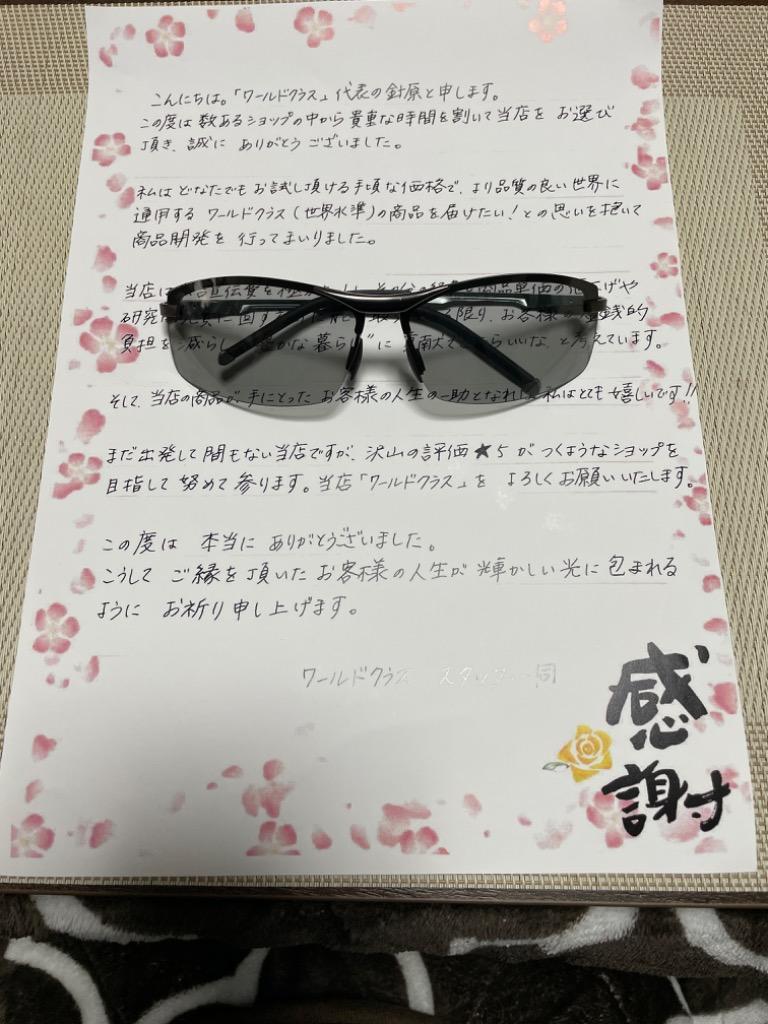 こんにちは。「ワールドクラス」代表の針原と申します。
この度は数あるショップの中から貴重な時間を割いて当店を お選び
頂き、誠に ありがとうございました。
私はどなたでもお試し頂ける手頃な価格で、より品質の良い世界に
通用する ワールドクラス(世界水準)の商品を届けたい!との思いを抱いて
商品開発を 行ってまいりました。
当店は 宣伝費を 商品単価の や
研究 限り、お客様の 金銭的
負担を 減らし 豊かな暮らし"に らいいな、と考えています。
そして、当店の商品が、手にとった お客様の人生の一助となれ 私はとても嬉しいです!!
まだ出発して間もない当店ですが、沢山の評価★5がつくようなショップを
目指して 努めて参ります。当店「ワールドクラス」を よろしくお願いいたします。
この度は 本当に ありがとうございました。
こうして ご縁を頂いた お客様の人生が 輝かしい光に包まれる
ように お祈り申し上げます。
ワールドクラス スタッフ一同
感
謝